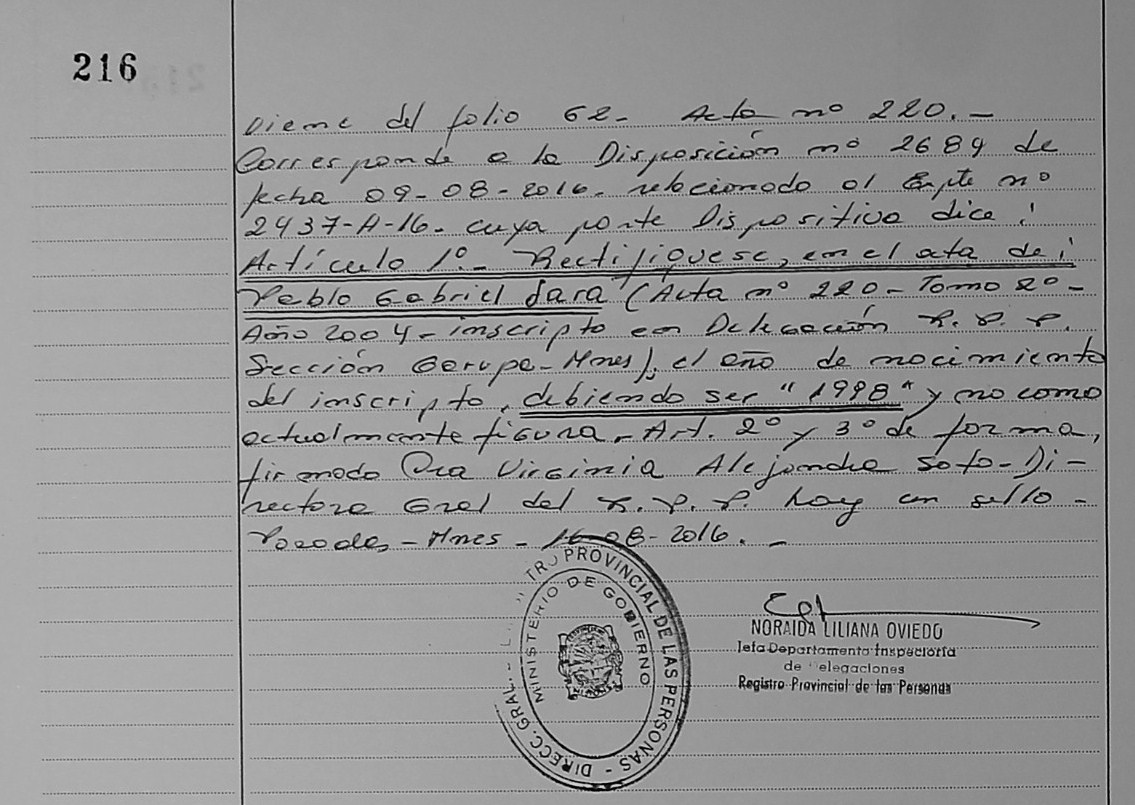 216
Viene del folio 62- Acta nº 220.-
Corresponde a la Disposición nº 2689 de
fecha 09-08-2016. relacionado al Expte nº
2437-A-16- cuya parte Dispositiva dice:
Artículo 1º- Rectifiquese, en el acta de:
Pablo Gabriel Jara (Acta nº 220- Tomo 2º-
Año 2004- inscripto en Delegación R. P. P.
Sección Gerupa- Mnes), el año de nacimiento
del inscripto, debiendo ser "1998" y no como
actualmente figura. Art. 2º y 3º de forma,
firmado Dra Virginia Alejandra Soto- Di-
rectora Gral del R. P. P. hay un sello-
Posadas- Mnes- 16-08-2016.-
DIRECC. GRAL. PROVINCIAL DE LAS PERSONAS
MINISTERIO DE GOBIERNO
NORAIDA LILIANA OVIEDO
Jefa Departamento Inspectoría
de elegaciones
Registro Provincial de las Personas